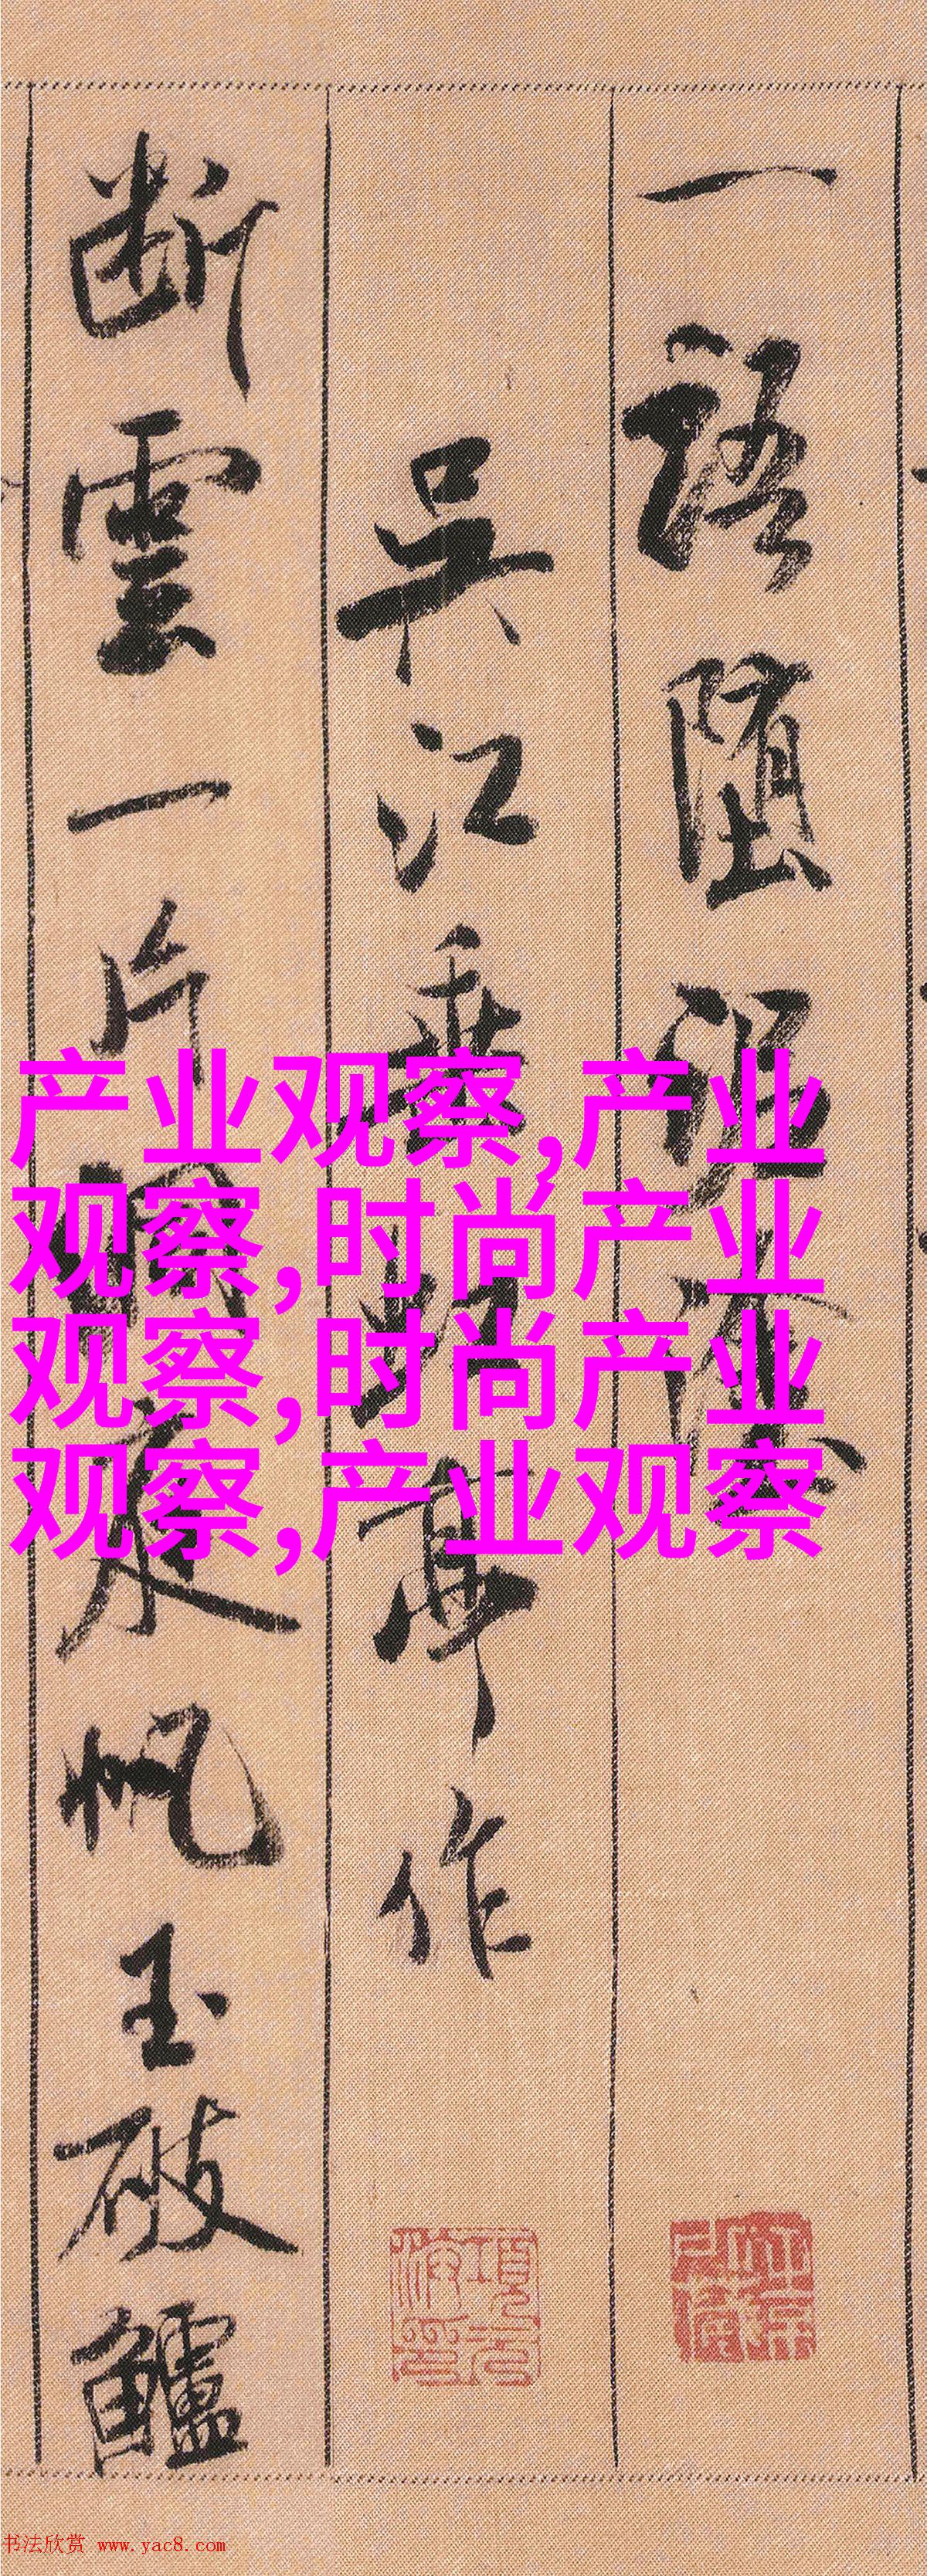 一語堕泥塗
吴江垂虹亭作
断雲一片洞庭帆玉破鱸
产业观察,产业
观察,时尚产业
观察,时尚产业
观察,产业观察
項元汴印
书法欣赏 www.yac8.com